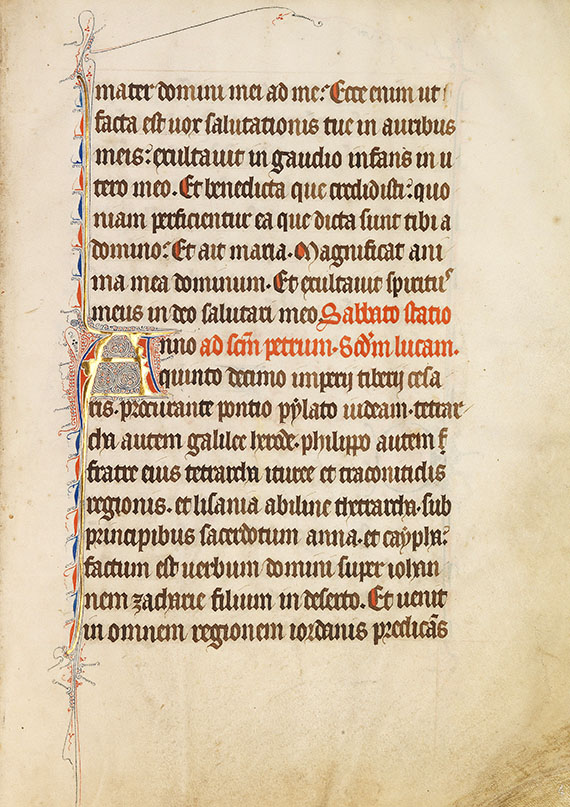 mater domini mei ad me: Ecce enim ut
facta est uox salutationis tue in auribus
meis: exultauit in gaudio infans in u
tero meo. Et benedicta que credidisti: quo
niam perficientur ea que dicta sunt tibi a
domino: Et ait maria. Magnificat ani
ma mea dominum. Et exultauit spiritus
meus in deo salutari meo Sabbato statio
Anno ad scm̄ petrum. Scdm̄ lucam.
quinto decimo imperij tiberij cesa
ris. procurante pontio pylato iudeam. tetrar
cha autem galilee herode. philippo autem f
fratre eius tetrarcha ituree et traconitidis
regionis. et lisania abiline thetrarcha. sub
principibus sacerdotum anna. et caypha:
factum est uerbum domini super iohan
nem zacharie filium in deserto. Et uenit
in omnem regionem iordanis predicās